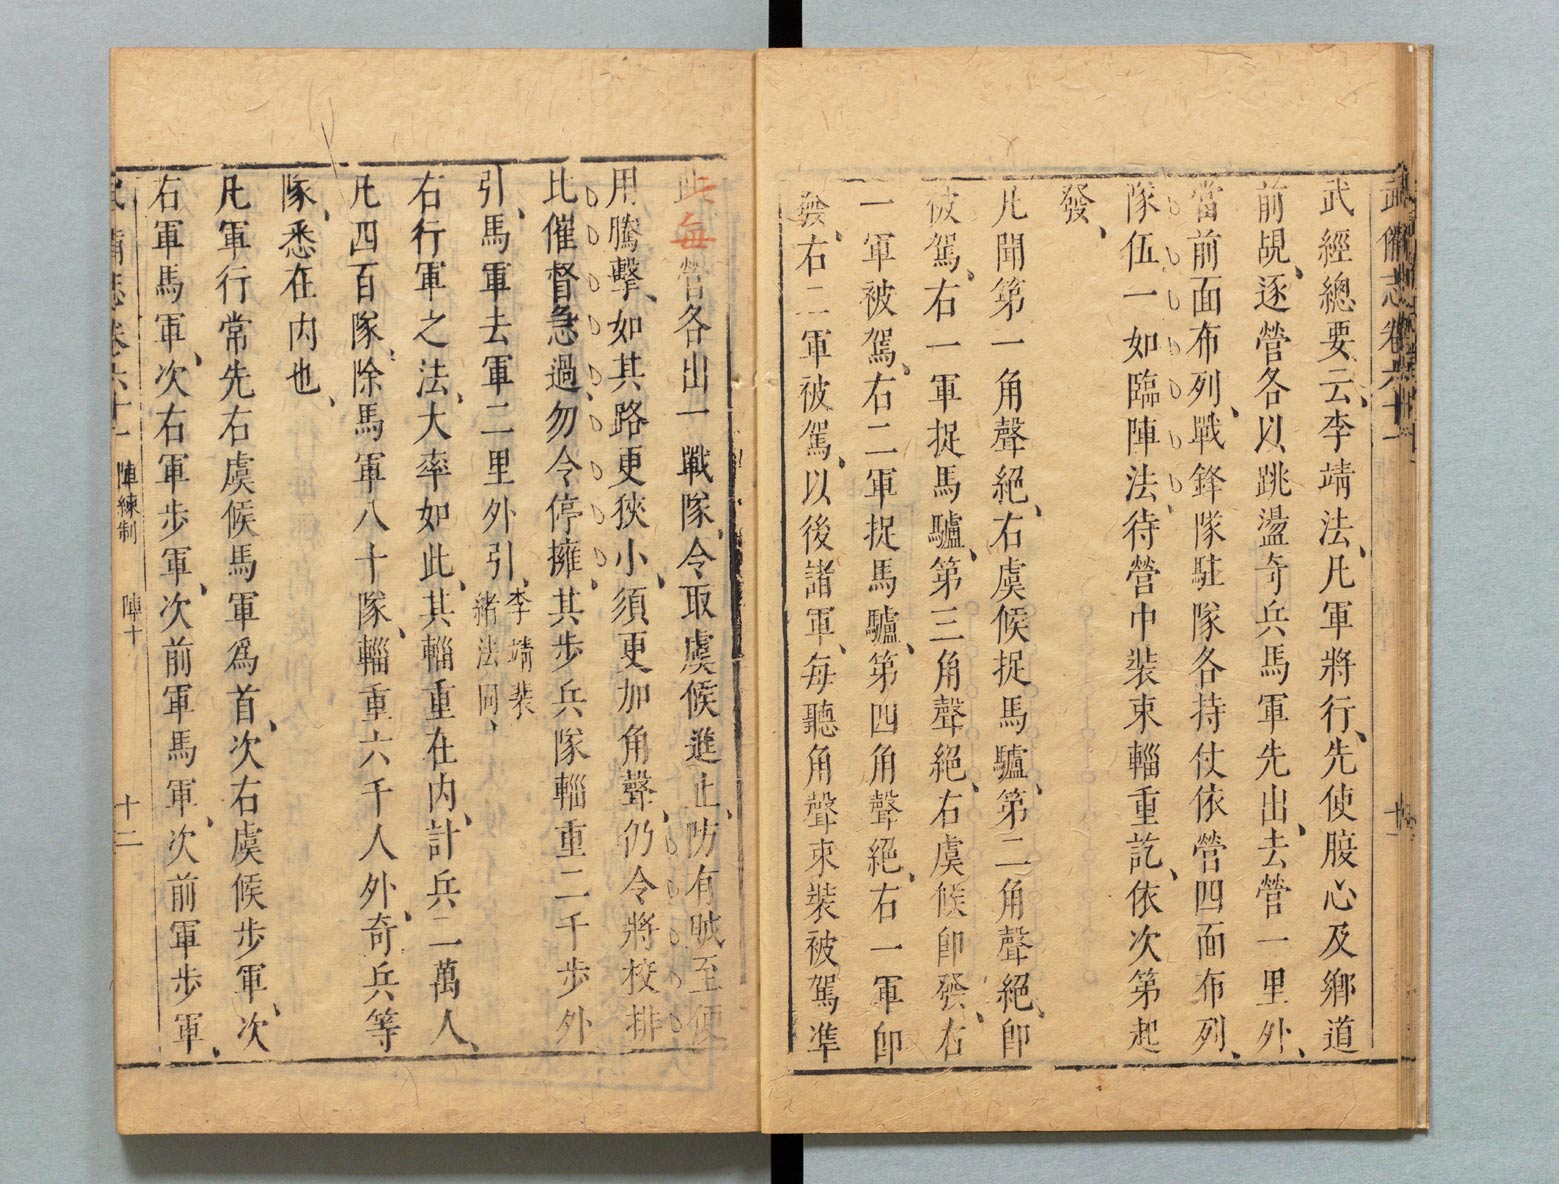 武備志卷六十一
武經總要云李靖法凡軍將行先使腹心及鄉道
前覘逐營各以跳盪奇兵馬軍先出去營一里外
當前面布列戰鋒隊駐隊各持仗依營四面布列
隊伍一如臨陣法待營中裝束輜重訖依次第起
發
凡聞第一角聲絕右虞候捉馬驢第二角聲絕卽
被駕右一軍捉馬驢第三角聲絕右虞候卽發右
一軍被駕右二軍捉馬驢第四角聲絕右一軍卽
發右二軍被駕以後諸軍每聽角聲束裝被駕準
此每營各出一戰隊令取虞候進止防有賊至便
用騰擊如其路更狹小須更加角聲仍令將校排
比催督急過勿令停擁其步兵隊輜重二千步外
引馬軍去軍二里外引李靖裴
緒法同
右行軍之法大率如此其輜重在內計兵二萬人
凡四百隊除馬軍八十隊輜重六千人外奇兵等
隊悉在內也
凡軍行常先右虞候馬軍爲首次右虞候步軍次
右軍馬軍次右軍步軍次前軍馬軍次前軍步軍
武備志卷六十一 陣練制 陣十 十二